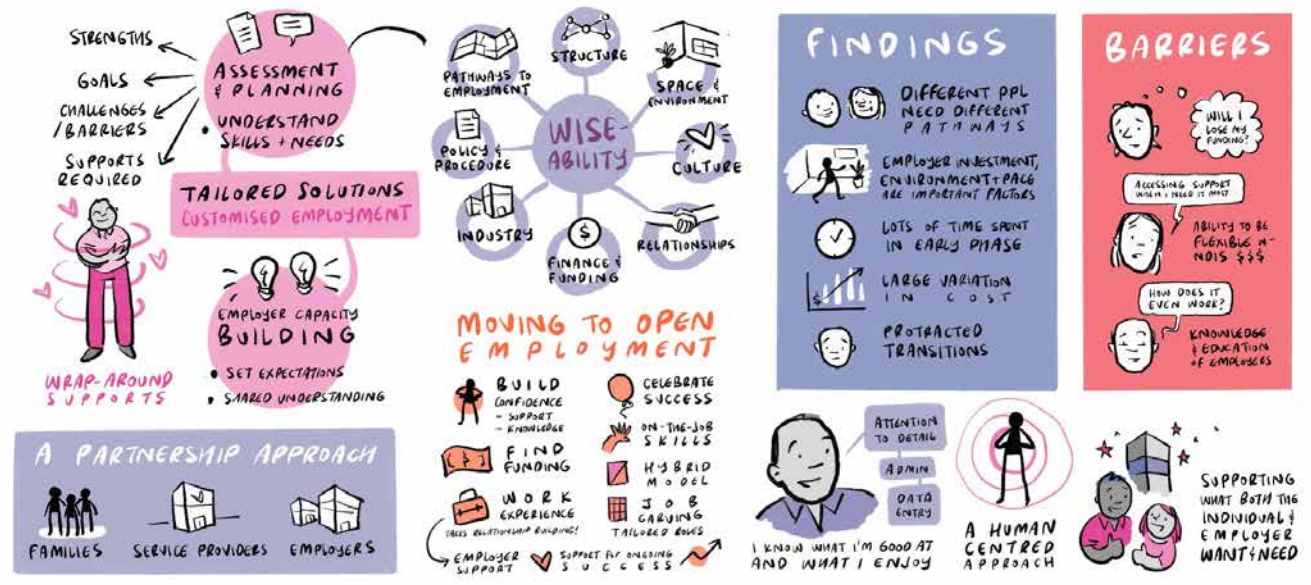 STRENGTHS
GOALS
CHALLENGES
/BARRIERS
SUPPORTS
REQUIRED
ASSESSMENT
& PLANNING
• UNDERSTAND
SKILLS + NEEDS
TAILORED SOLUTIONS
CUSTOMISED EMPLOYMENT
EMPLOYER CAPACITY
BUILDING
• SET EXPECTATIONS
• SHARED UNDERSTANDING
WRAP-AROUND
SUPPORTS
A PARTNERSHIP APPROACH
FAMILIES
SERVICE PROVIDERS
EMPLOYERS
WISE-
ABILITY
PATHWAYS TO
EMPLOYMENT
STRUCTURE
SPACE &
ENVIRONMENT
POLICY &
PROCEDURE
CULTURE
INDUSTRY
$
FINANCE &
FUNDING
RELATIONSHIPS
MOVING TO OPEN
EMPLOYMENT
BUILD
CONFIDENCE
- SUPPORT
- KNOWLEDGE
FIND
FUNDING
WORK
EXPERIENCE
TAKES RELATIONSHIP BUILDING!
EMPLOYER
SUPPORT
CELEBRATE
SUCCESS
ON-THE-JOB
SKILLS
HYBRID
MODEL
JOB
CARVING
TAILORED ROLES
SUPPORT FOR ONGOING
SUCCESS
FINDINGS
DIFFERENT PPL
NEED DIFFERENT
PATHWAYS
EMPLOYER INVESTMENT,
ENVIRONMENT + PACE
ARE IMPORTANT FACTORS
LOTS OF TIME SPENT
IN EARLY PHASE
$
LARGE VARIATION
IN COST
PROTRACTED
TRANSITIONS
BARRIERS
WILL I
LOSE MY
FUNDING?
ACCESSING SUPPORT
WHEN I NEED IT MOST
ABILITY TO BE
FLEXIBLE IN
NDIS $$$
HOW DOES IT
EVEN WORK?
KNOWLEDGE
& EDUCATION
OF EMPLOYERS
ATTENTION
TO DETAIL
ADMIN
DATA
ENTRY
I KNOW WHAT I'M GOOD AT
AND WHAT I ENJOY
A HUMAN
CENTRED
APPROACH
SUPPORTING
WHAT BOTH THE
INDIVIDUAL &
EMPLOYER
WANT & NEED